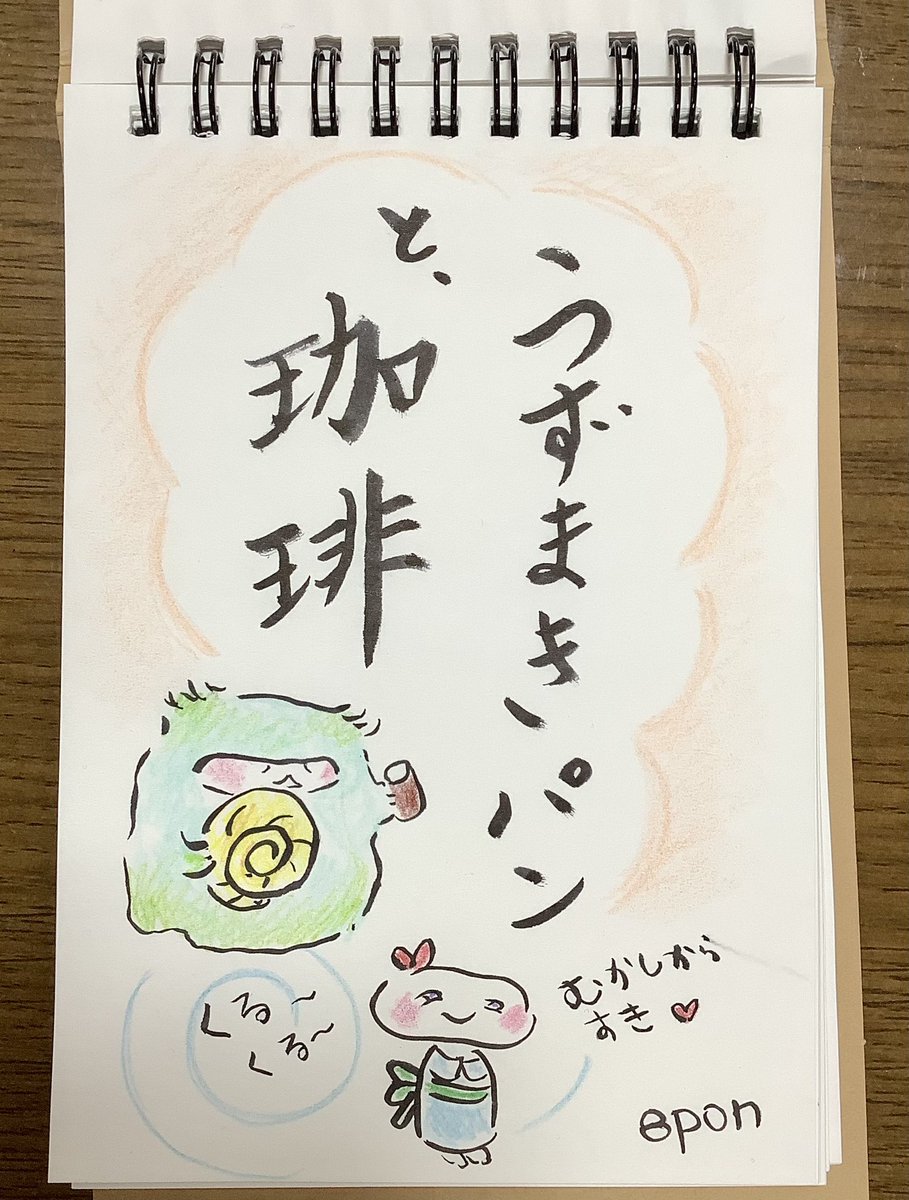 うずまきパン
と、珈琲
むかしから
すき
くる〜
くる〜
epon